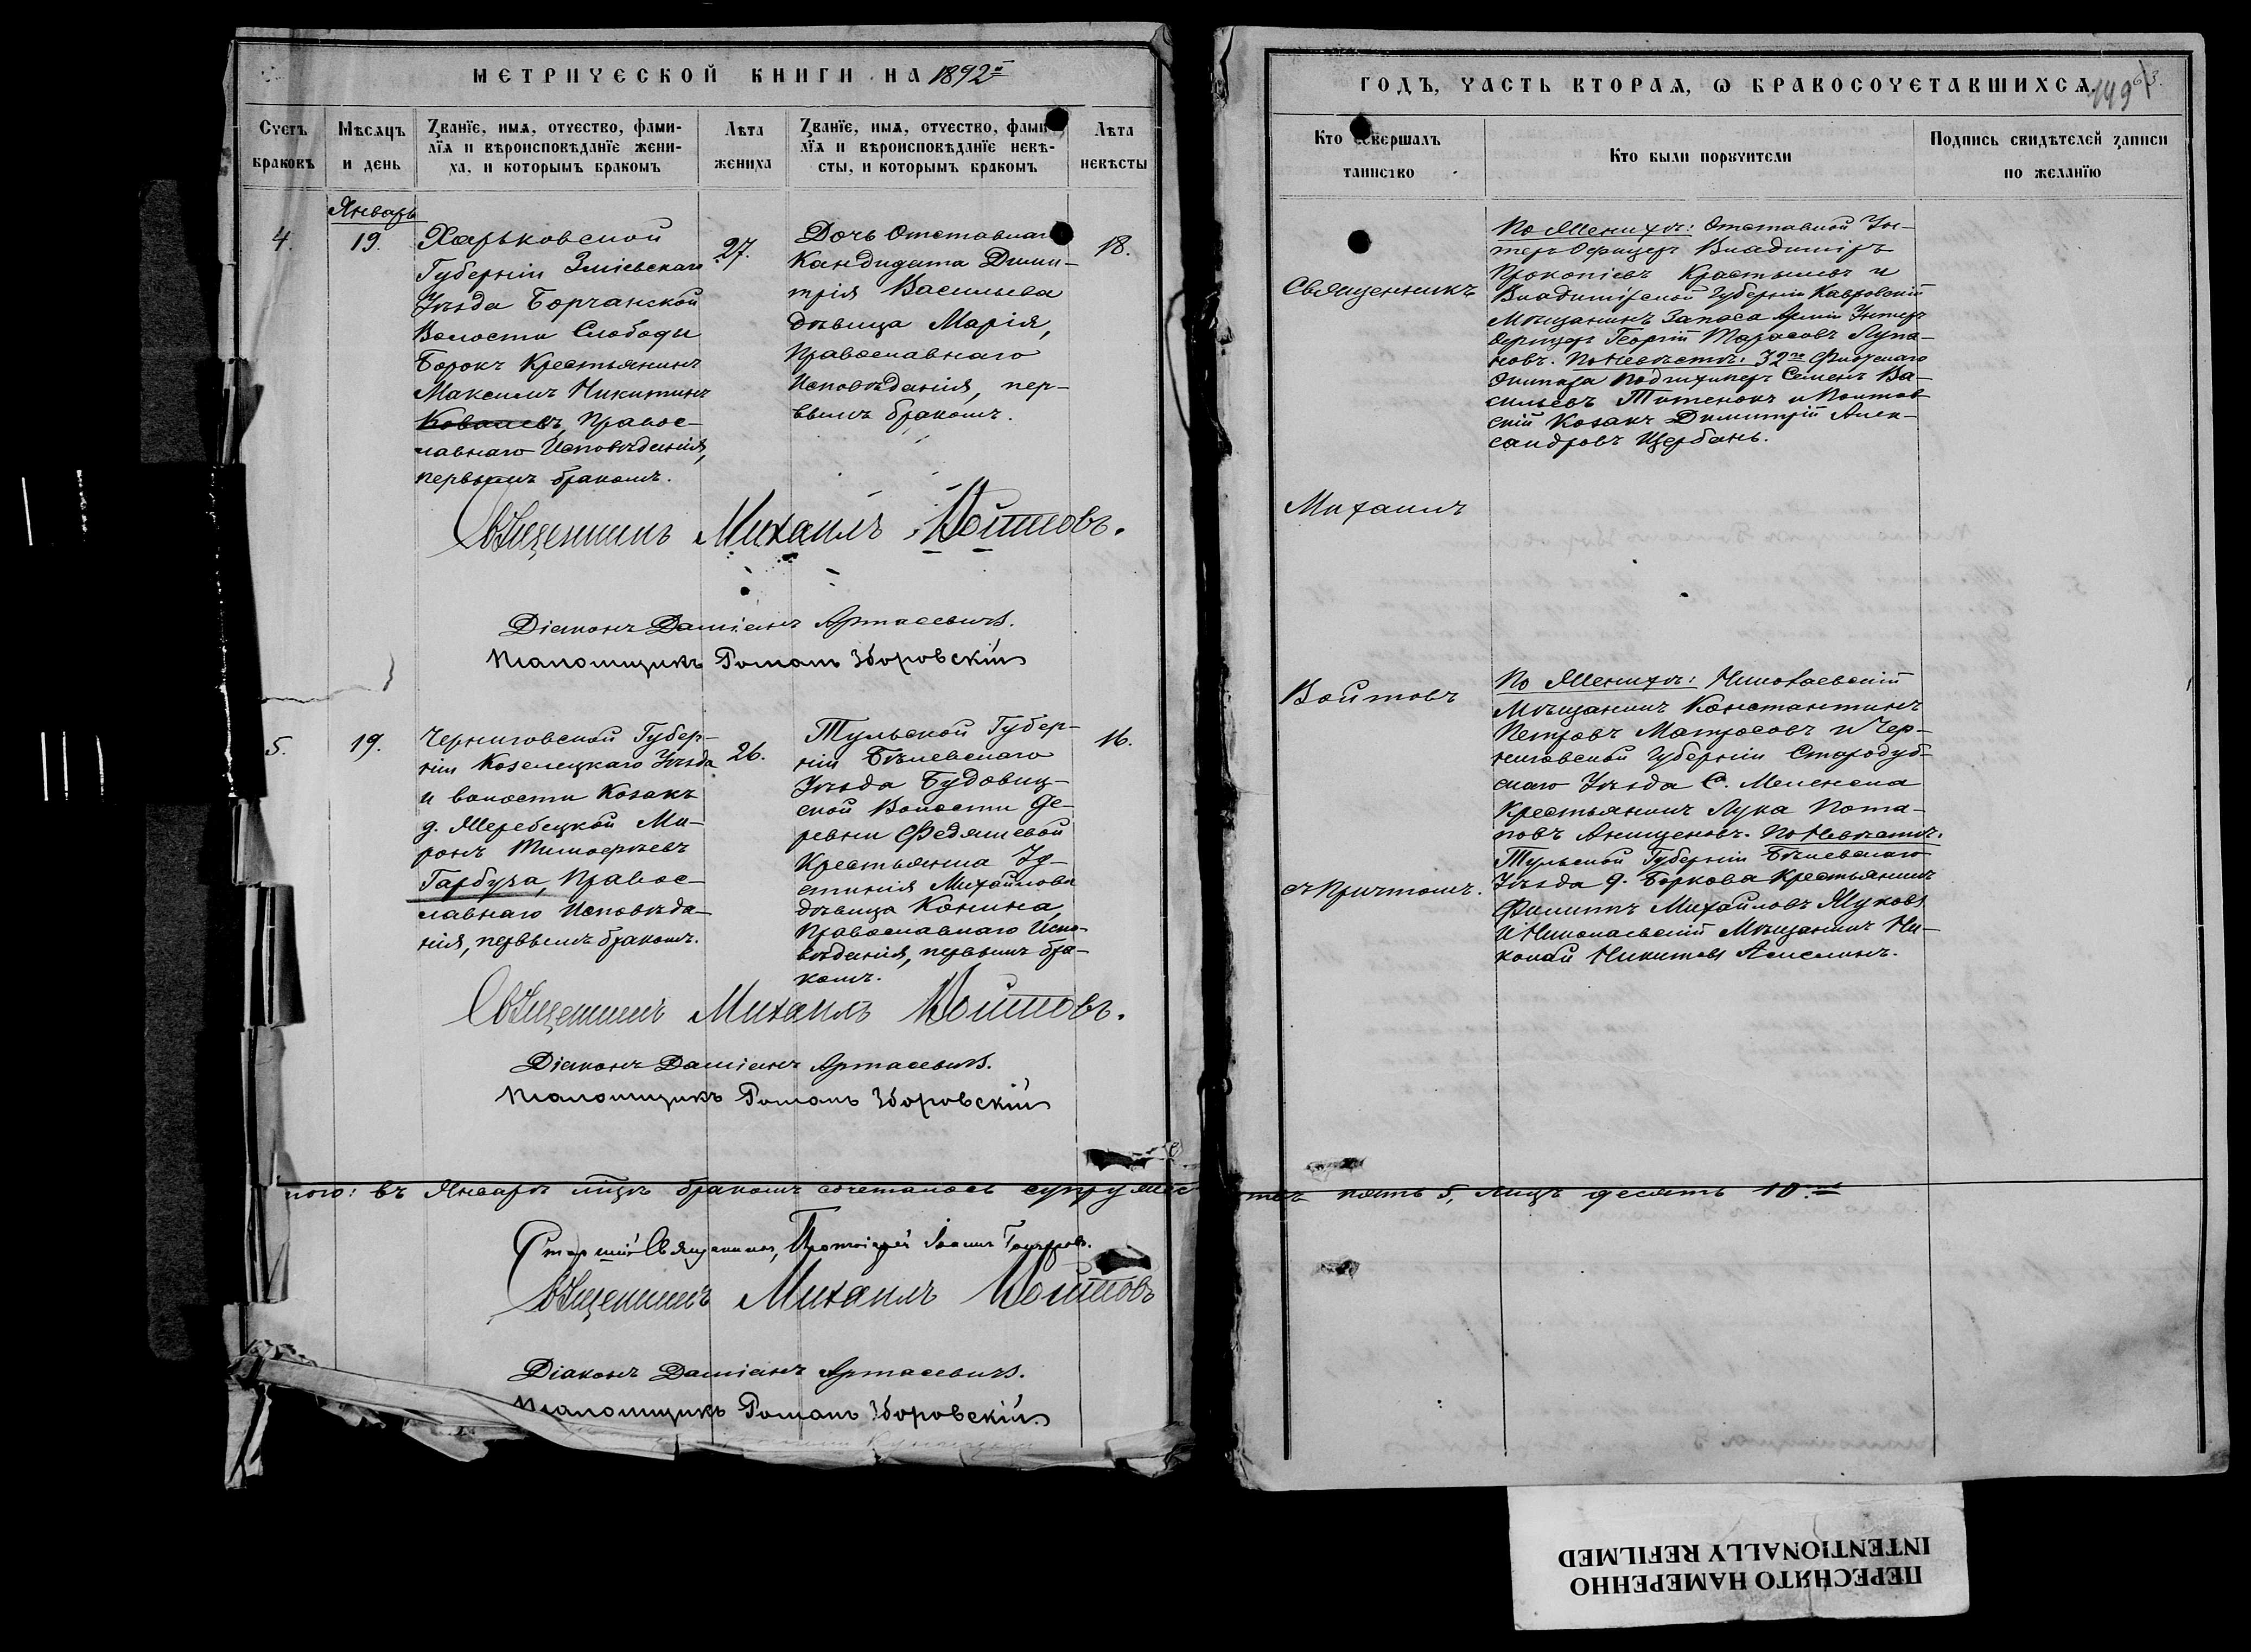 МЕТРИЧЕСКОЙ КНИГИ НА 1892й
Счетъ браковъ
Мѣсяцъ и день
Званіе, имя, отчество, фами-
лія и вѣроисповѣданіе жени-
ха, и которымъ бракомъ
Лѣта жениха
Званіе, имя, отчество, фами
лія и вѣроисповѣданіе невѣ-
сты, и которымъ бракомъ
Лѣта невѣсты
Январь
4.
19.
Харьковской
Губерніи Зміевскаго
Уѣзда Борчанской
Волости Слободы
Борокъ Крестьянинъ
Максимъ Никитинъ
Ковалевъ, Правос-
лавнаго Исповѣданія,
первымъ бракомъ.
27.
Дочь Отставнаго
Кандидата Дими-
трія Васильева
дѣвица Марія,
Православнаго
Исповѣданія, пер-
вымъ бракомъ.
18.
Священникъ Михаилъ Войтовъ.
Діаконъ Даміанъ Артасевичъ.
Псаломщикъ Романъ Зборовскій
5.
19.
Черниговской Губер-
ніи Козелецкаго Уѣзда
и волости Козакъ
д. Жеребецкой Ми-
ронъ Тимофѣевъ
Гарбуза, Правос-
лавнаго Исповѣда-
нія, первымъ бракомъ.
26.
Тульской Губер-
ніи Бѣлевскаго
Уѣзда Будовиц-
ской Волости де-
ревни Федяшевой
Крестьянка Ус-
тинія Михайлова
дѣвица Конина,
Православнаго Испо-
вѣданія, первымъ бра-
комъ.
16.
Священникъ Михаилъ Войтовъ.
Діаконъ Даміанъ Артасевичъ.
Псаломщикъ Романъ Зборовскій
того: въ Январѣ мцѣ бракомъ сочеталось супружес
Старшій Священникъ, Протоіерей Іоаннъ
Священникъ Михаилъ Войтовъ
Діаконъ Даміанъ Артасевичъ.
Псаломщикъ Романъ Зборовскій
ГОДЪ, ЧАСТЬ ВТОРАЯ, Ѡ БРАКОСОЧЕТАВШИХСЯ.
149
63.
Кто совершалъ таинство
Кто были поручители
Подпись свидѣтелей записи по желанію
Священникъ
Михаилъ
Войтовъ
съ Причтомъ.
По Женихѣ: Отставной Ун-
теръ Офицеръ Владиміръ
Прокопіевъ Крастылевъ и
Владимірской Губерніи Ковровскій
Мѣщанинъ Запаса Арміи Унтеръ
Офицеръ Георгій Тарасовъ Лупа-
новъ. По Невѣстѣ: 32го Флотскаго
Экипажа Подшхиперъ Семенъ Ва-
сильевъ Титенокъ и Полтав-
скій Козакъ Димитрій Алек-
сандровъ Щербань.
По Женихѣ: Николаевскій
Мѣщанинъ Константинъ
Петровъ Матросовъ и Чер-
ниговской Губерніи Стародуб-
скаго Уѣзда С. Меленска
Крестьянинъ Лука Пота-
повъ Анищеновъ. По Невѣстѣ:
Тульской Губерніи Бѣлевскаго
Уѣзда д. Боркова Крестьянинъ
Филиппъ Михайловъ Жуковъ
и Николаевскій Мѣщанинъ Ни-
колай Никитовъ Амелинъ.
твъ пять 5, лицъ десять 10.
ПЕРЕСНЯТО НАМЕРЕННО
INTENTIONALLY REFILMED